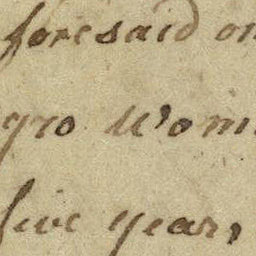 foresaid on
gro Wom
five year,